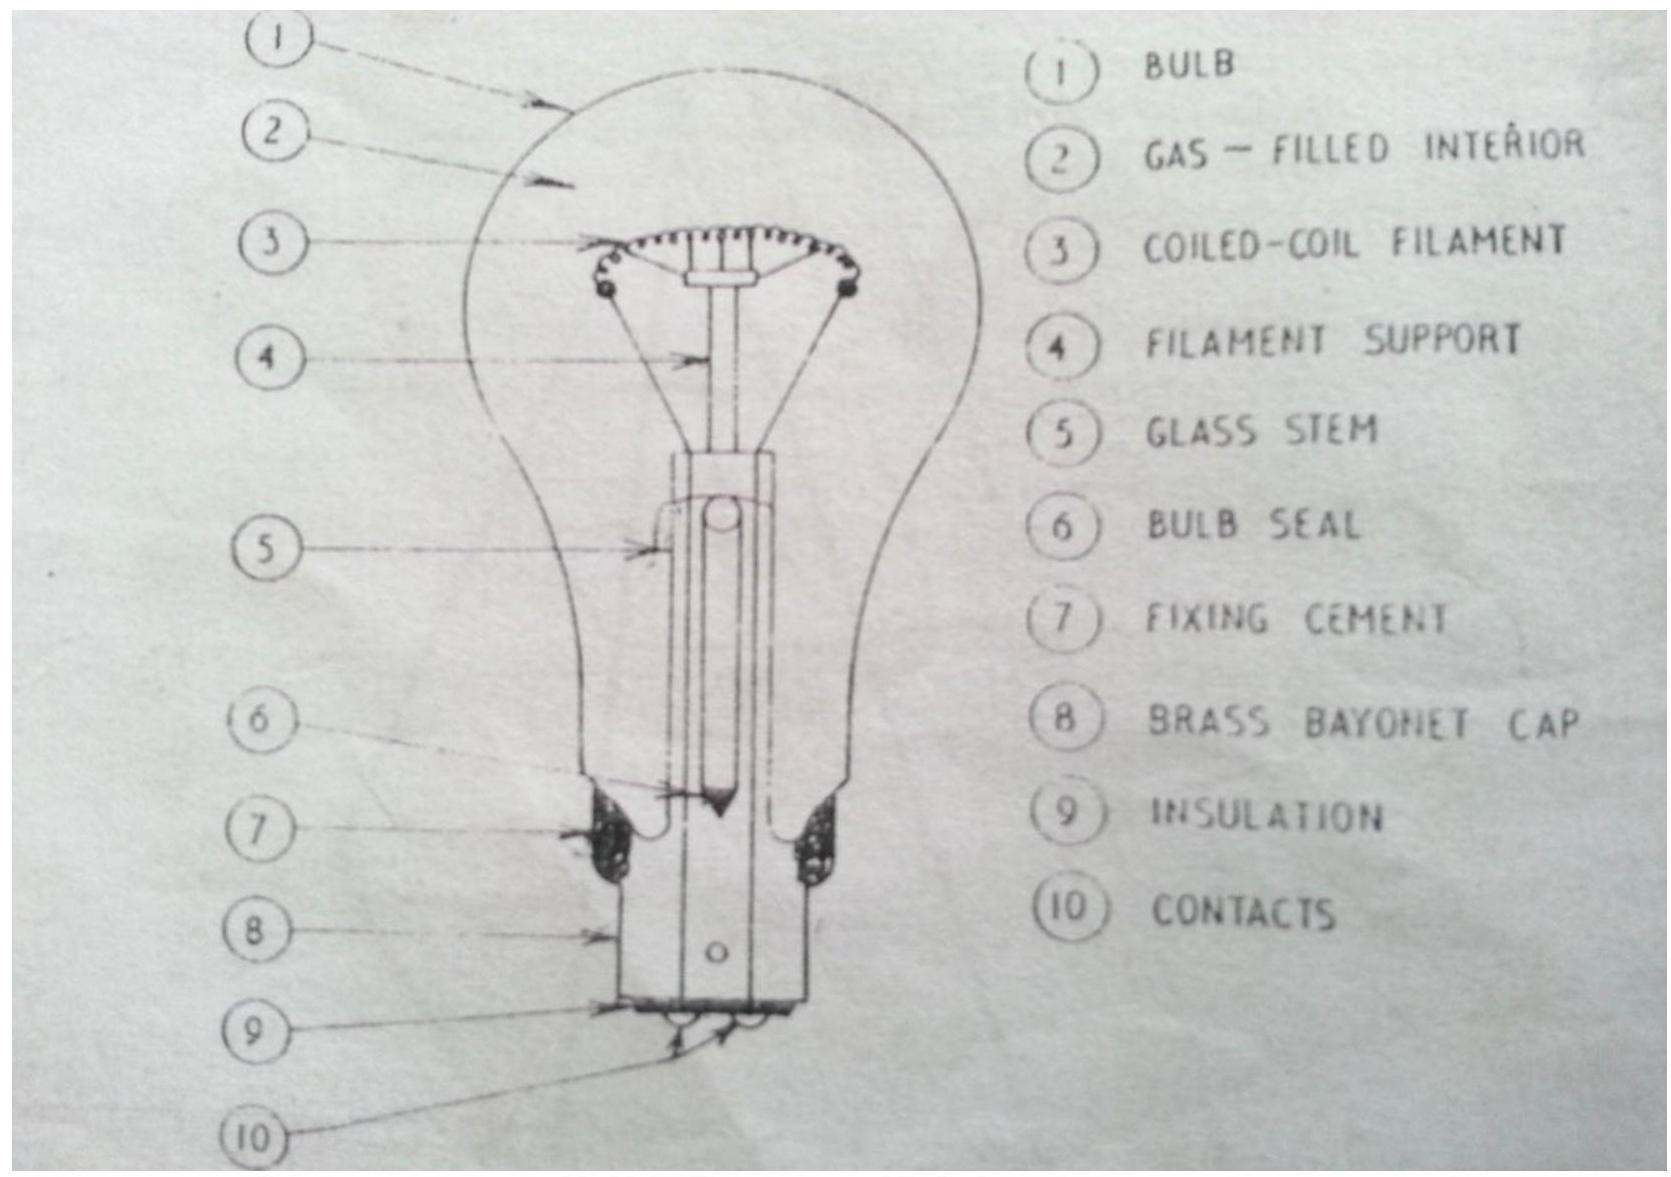 1
2
3
4
5
6
7
8
9
10
1 BULB
2 GAS – FILLED INTERIOR
3 COILED-COIL FILAMENT
4 FILAMENT SUPPORT
5 GLASS STEM
6 BULB SEAL
7 FIXING CEMENT
8 BRASS BAYONET CAP
9 INSULATION
10 CONTACTS